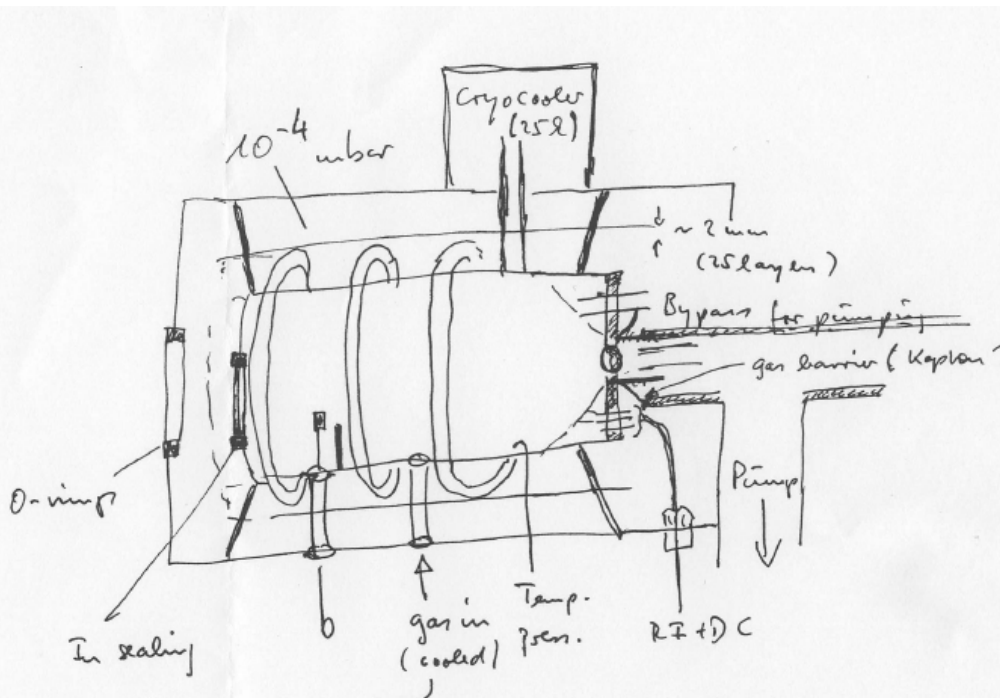 Cryocooler
(25ℓ)
10⁻⁴ mbar
~ 2 mm
(25 layers)
Bypass for pumping
gas barrier (Kapton
O-rings
Pump
In sealing
gas in
(cooled)
Temp.
Press.
RF + DC